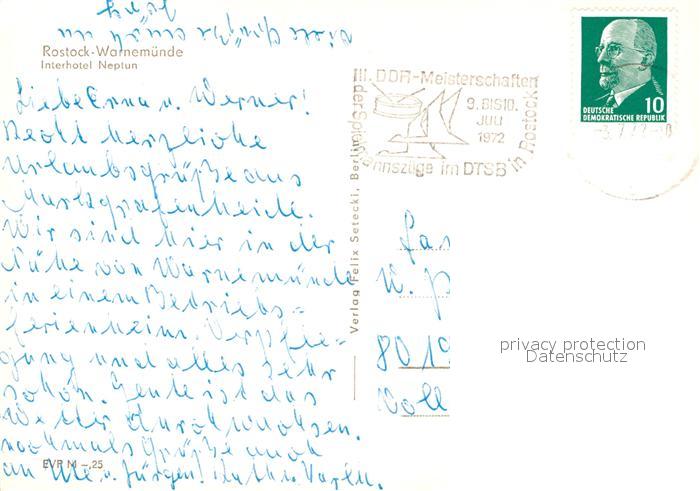 Rostock-Warnemünde
Interhotel Neptun
Liebe Erna u. Werner!
Recht herzliche
Urlaubsgrüße aus
Markgrafenheide.
Wir sind hier in der
Nähe von Warnemünde
in einem Betriebs=
ferienheim. Verpfle=
gung und alles sehr
schön. Heute ist das
Wetter durchwachsen.
nochmals Grüße auch
an Ute u. Jürgen!
EVP M -,25
Verlag Felix Setecki, Berlin
III. DDR-Meisterschaften
der Spielmannszüge im DTSB in Rostock
9. BIS 10.
JULI
1972
DEUTSCHE
DEMOKRATISCHE REPUBLIK
10
W. P
8019
privacy protection
Datenschutz